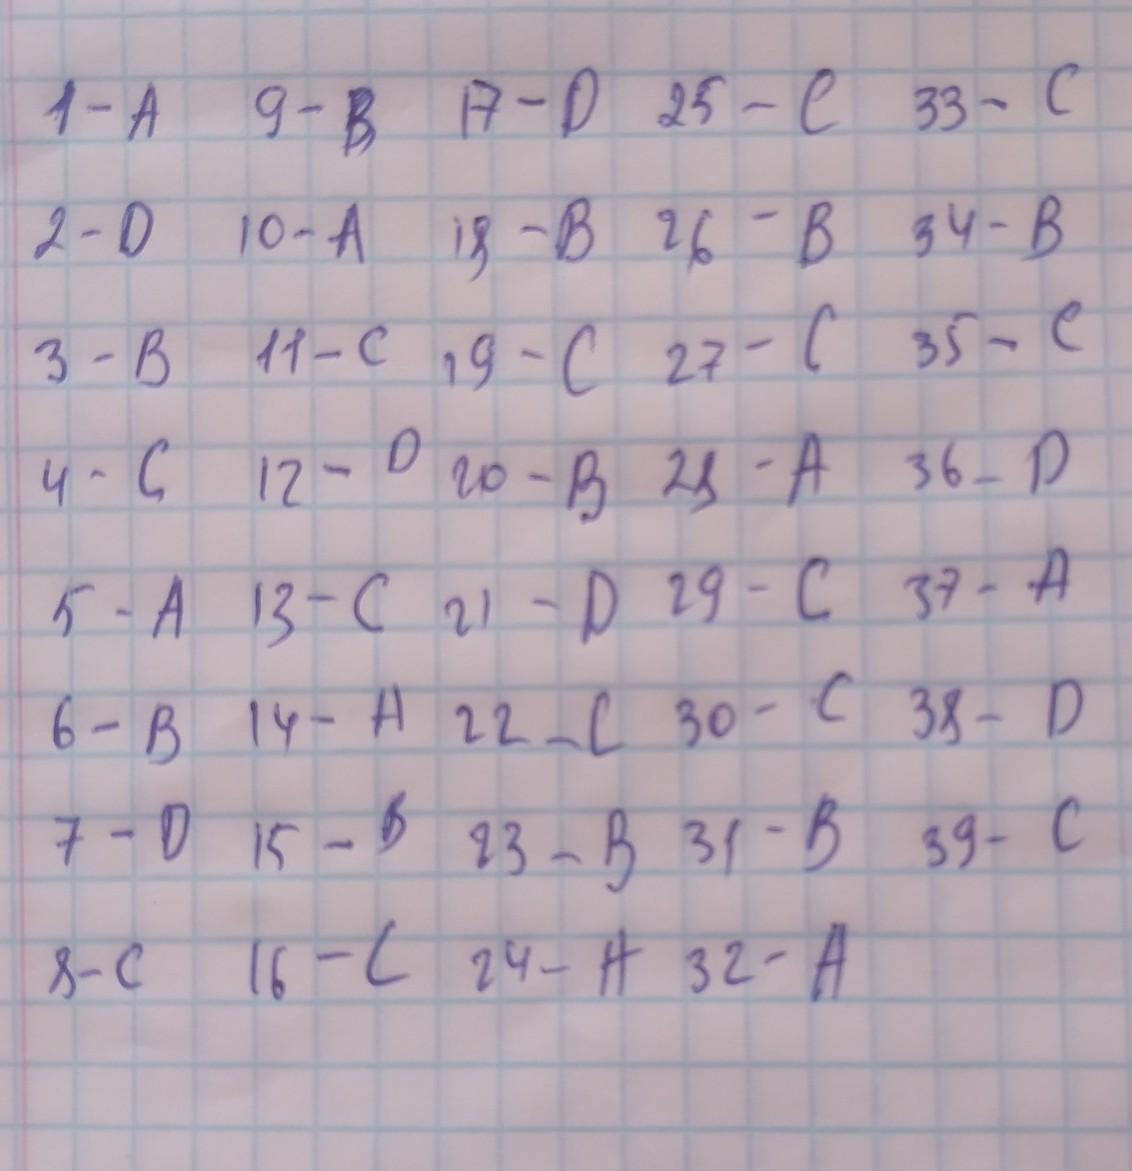 1-A 9-B 17-D 25-C 33-C
2-D 10-A 18-B 26-B 34-B
3-B 11-C 19-C 27-C 35-C
4-C 12-D 20-B 28-A 36-D
5-A 13-C 21-D 29-C 37-A
6-B 14-A 22-C 30-C 38-D
7-D 15-B 23-B 31-B 39-C
8-C 16-C 24-A 32-A